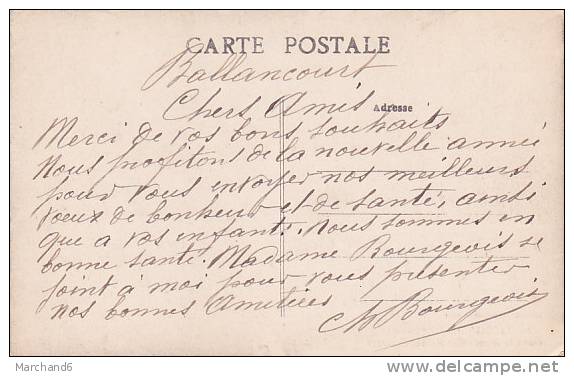 CARTE POSTALE
Ballancourt
Chers Amis
Adresse
Merci de vos bons souhaits
Nous profitons de la nouvelle anneé
pour vous envoyer nos meilleurs
voeux de bonheur et de santé, ainsi
que a vos enfants. Nous sommes en
bonne santé. Madame Bourgeois se
joint à moi pour vous présenter
nos bonnes Amitiées
Ch Bourgeois
Marchand6
delcampe.net